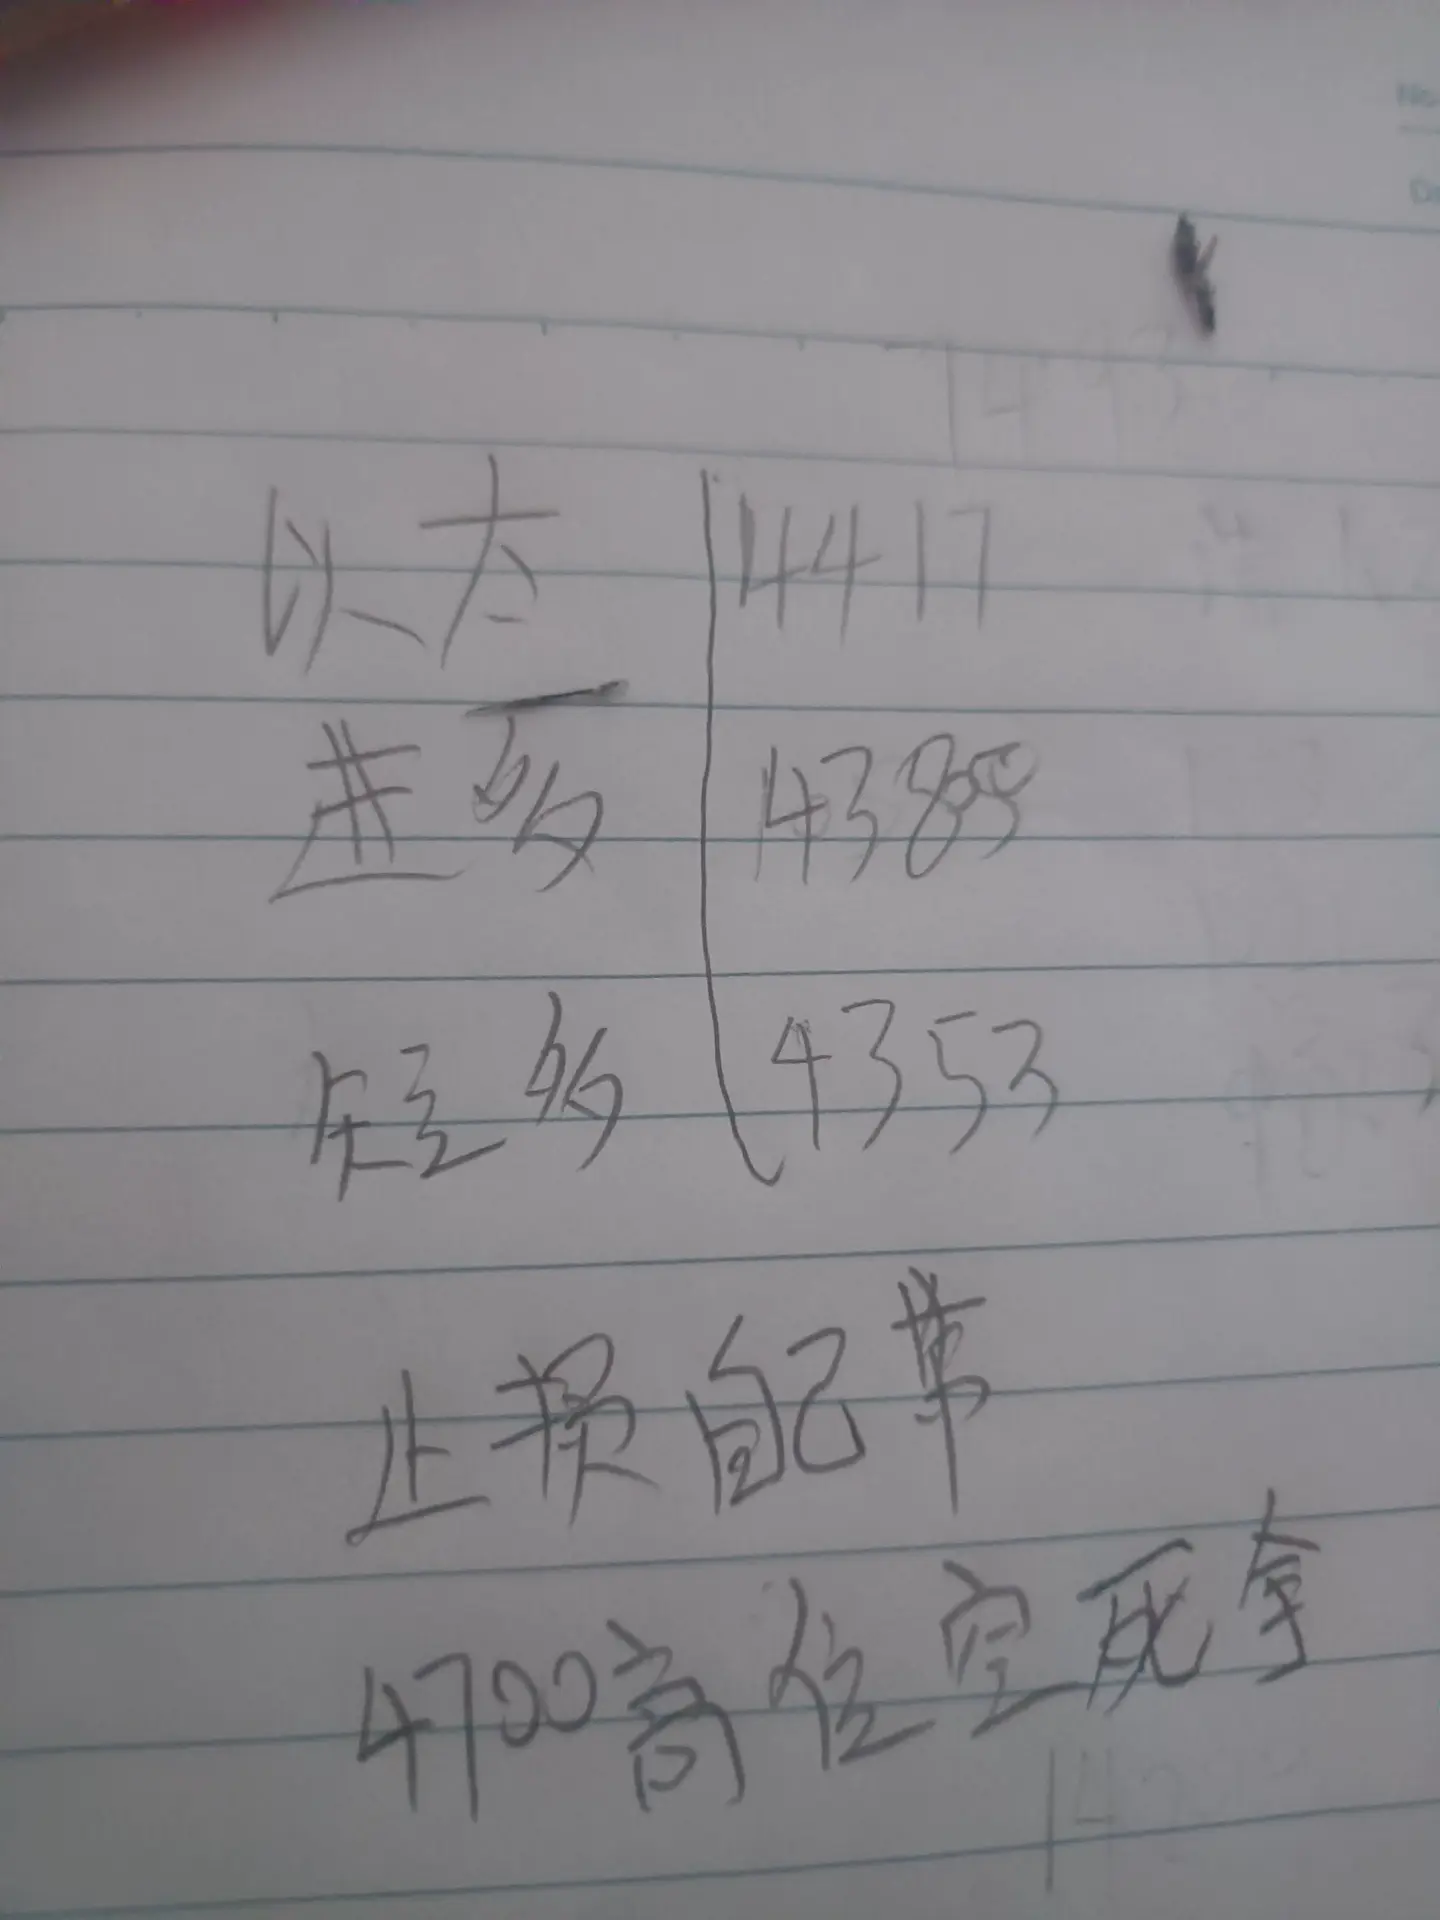 以太 4417
进多 4385
短多 4353
止损自己带
4700高位空死拿